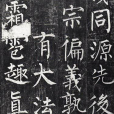 同源先後
宗偏義孰
有大法
霜雹趣真